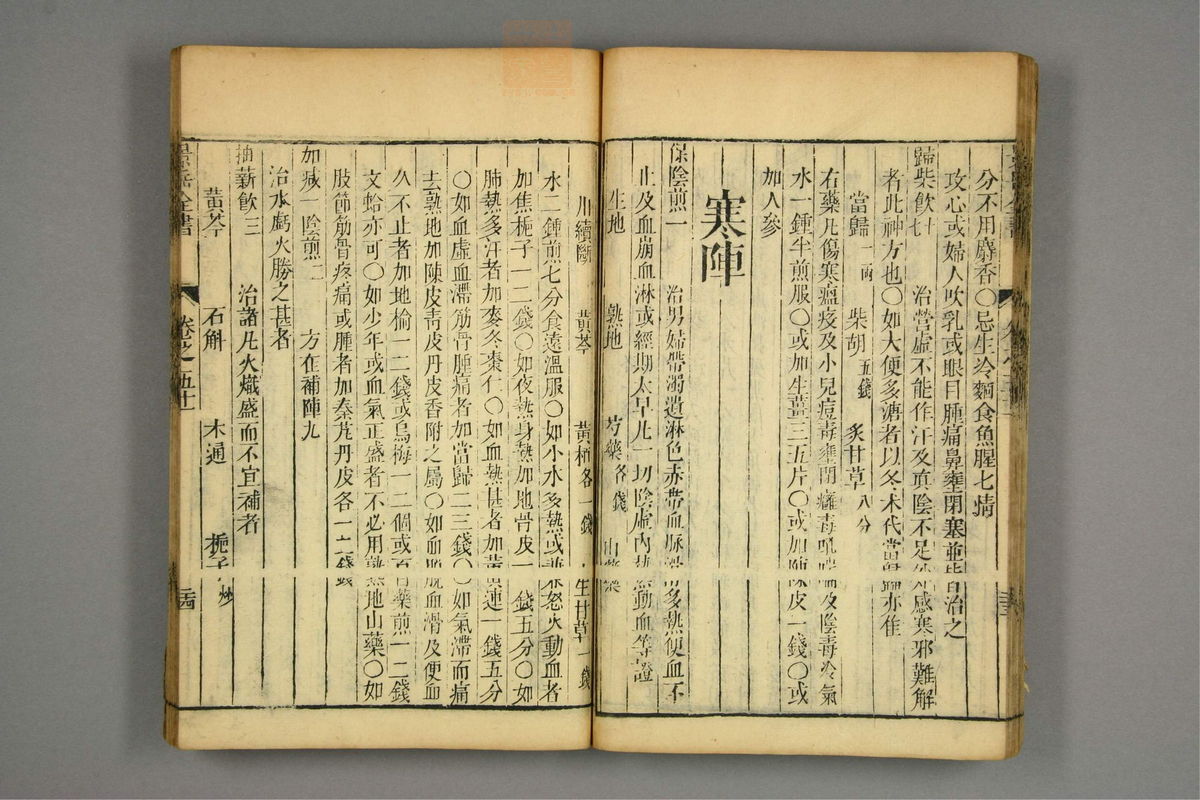 分不用麝香〇忌生冷麵食魚腥七情
攻心或婦人吹乳或眼目腫痛鼻壅閉塞並皆治之
歸柴飲十七 治營虛不能作汗及真陰不足外感寒邪難解
者此神方也〇如大便多溏者以冬朮代當歸亦佳
當歸一兩 柴胡五錢 炙甘草八分
右藥凡傷寒瘟疫及小兒痘毒壅閉癰毒吼喘及陰毒冷氣
水一鍾半煎服〇或加生薑三五片〇或加陳皮一錢〇或
加人參
寒陣
保陰煎一 治男婦帶濁遺淋色赤帶血脉滑多熱便血不
止及血崩血淋或經期太早凡一切陰虛內熱動血等證
生地 熟地 芍藥各二錢 山藥
川續斷 黃芩 黃柏各一錢半 生甘草一錢
水二鍾煎七分食遠溫服〇如小水多熱或兼怒火動血者
加焦梔子一二錢〇如夜熱身熱加地骨皮一錢五分〇如
肺熱多汗者加麥冬棗仁〇如血熱甚者加黃連一錢五分
〇如血虛血滯筋骨腫痛者加當歸二三錢〇如氣滯而痛
去熟地加陳皮青皮丹皮香附之屬〇如血脫血滑及便血
久不止者加地榆一二錢或烏梅一二個或百藥煎一二錢
文蛤亦可〇如少年或血氣正盛者不必用熟地山藥〇如
肢節筋骨疼痛或腫者加秦艽丹皮各一二錢
加減一陰煎二 方在補陣九
治水虧火勝之甚者
抽薪飲三 治諸凡火熾盛而不宜補者
黃芩 石斛 木通 梔子炒
景岳全書 卷之五十一 二四